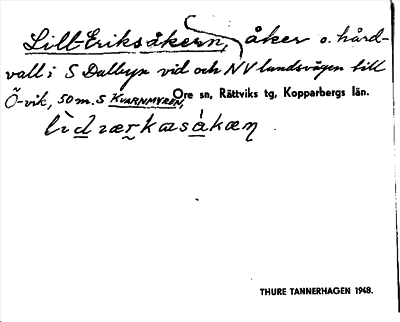 Lill-Eriksåkern, åker o. hård-
vall i S Dalbyn vid och NV landsvägen till
Ö-vik, 50 m. S KVARNMYREN,
Ore sn, Rättviks tg, Kopparbergs län.
THURE TANNERHAGEN 1948.